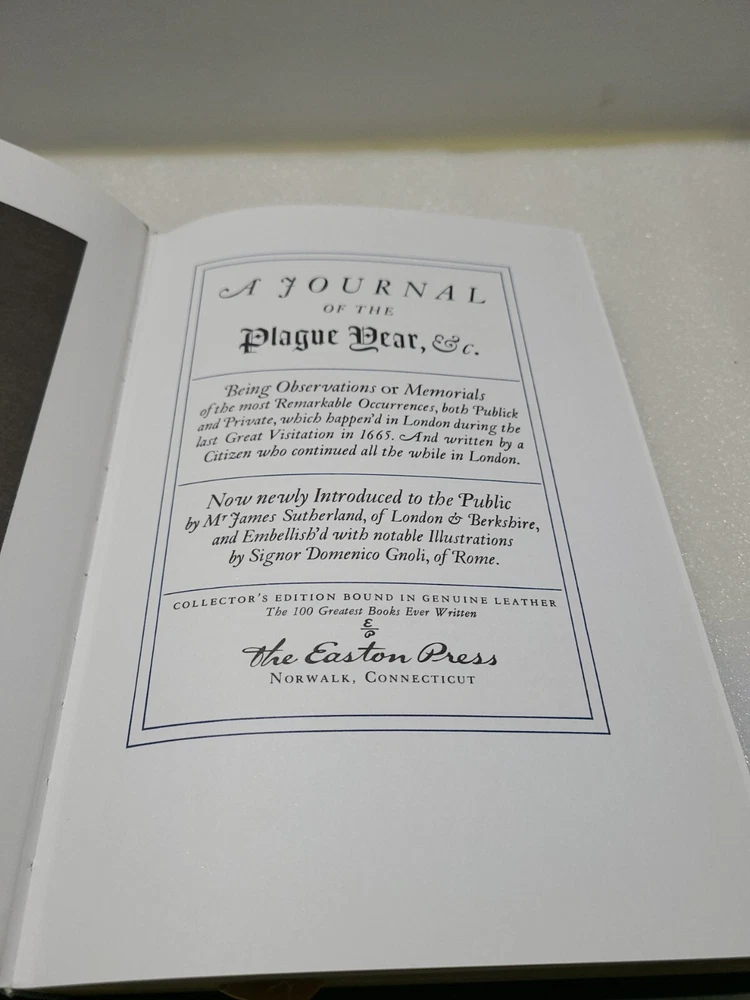 A JOURNAL
OF THE
Plague Year, &c.
Being Observations or Memorials
of the most Remarkable Occurrences, both Publick
and Private, which happen'd in London during the
last Great Visitation in 1665. And written by a
Citizen who continued all the while in London.
Now newly Introduced to the Public
by Mr James Sutherland, of London & Berkshire,
and Embellish'd with notable Illustrations
by Signor Domenico Gnoli, of Rome.
COLLECTOR'S EDITION BOUND IN GENUINE LEATHER
The 100 Greatest Books Ever Written
E
P
The Easton Press
NORWALK, CONNECTICUT